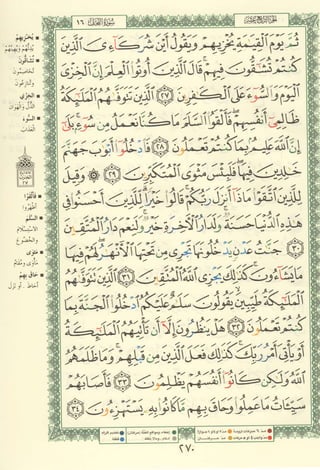 سُورَةُ النَّحْلِ ١٦
ثُمَّ يَوْمَ الْقِيَٰمَةِ يُخْزِيهِمْ وَيَقُولُ أَيْنَ شُرَكَآءِىَ الَّذِينَ
كُنتُمْ تُشَٰٓقُّونَ فِيهِمْ ۚ قَالَ الَّذِينَ أُوتُوا الْعِلْمَ إِنَّ الْخِزْىَ
الْيَوْمَ وَالسُّوٓءَ عَلَى الْكَٰفِرِينَ ٢٧ الَّذِينَ تَتَوَفَّىٰهُمُ الْمَلَٰٓئِكَةُ
ظَالِمِىٓ أَنفُسِهِمْ ۖ فَأَلْقَوُا السَّلَمَ مَا كُنَّا نَعْمَلُ مِن سُوٓءٍۭ ۚ بَلَىٰٓ
إِنَّ اللَّهَ عَلِيمٌۢ بِمَا كُنتُمْ تَعْمَلُونَ ٢٨ فَادْخُلُوٓا أَبْوَٰبَ جَهَنَّمَ
خَٰلِدِينَ فِيهَا ۖ فَلَبِئْسَ مَثْوَى الْمُتَكَبِّرِينَ ٢٩ ۞ وَقِيلَ
لِلَّذِينَ اتَّقَوْا مَاذَآ أَنزَلَ رَبُّكُمْ ۚ قَالُوا خَيْرًا ۗ لِّلَّذِينَ أَحْسَنُوا فِى
هَٰذِهِ الدُّنْيَا حَسَنَةٌ ۚ وَلَدَارُ الْءَاخِرَةِ خَيْرٌ ۚ وَلَنِعْمَ دَارُ الْمُتَّقِينَ
٣٠ جَنَّٰتُ عَدْنٍ يَدْخُلُونَهَا تَجْرِى مِن تَحْتِهَا الْأَنْهَٰرُ ۖ لَهُمْ فِيهَا
مَا يَشَآءُونَ ۚ كَذَٰلِكَ يَجْزِى اللَّهُ الْمُتَّقِينَ ٣١ الَّذِينَ تَتَوَفَّىٰهُمُ
الْمَلَٰٓئِكَةُ طَيِّبِينَ ۙ يَقُولُونَ سَلَٰمٌ عَلَيْكُمُ ادْخُلُوا الْجَنَّةَ بِمَا
كُنتُمْ تَعْمَلُونَ ٣٢ هَلْ يَنظُرُونَ إِلَّآ أَن تَأْتِيَهُمُ الْمَلَٰٓئِكَةُ
أَوْ يَأْتِىَ أَمْرُ رَبِّكَ ۚ كَذَٰلِكَ فَعَلَ الَّذِينَ مِن قَبْلِهِمْ ۚ وَمَا ظَلَمَهُمُ
اللَّهُ وَلَٰكِن كَانُوٓا أَنفُسَهُمْ يَظْلِمُونَ ٣٣ فَأَصَابَهُمْ
سَيِّـَٔاتُ مَا عَمِلُوا وَحَاقَ بِهِم مَّا كَانُوا بِهِۦ يَسْتَهْزِءُونَ ٣٤
يُخْزِيهِمْ
تُشَٰٓقُّونَ
الْخِزْىَ
السُّوٓءَ
العَذَابَ
السَّلَمَ
مَثْوَى
حَاقَ بِهِم
٢٧٠